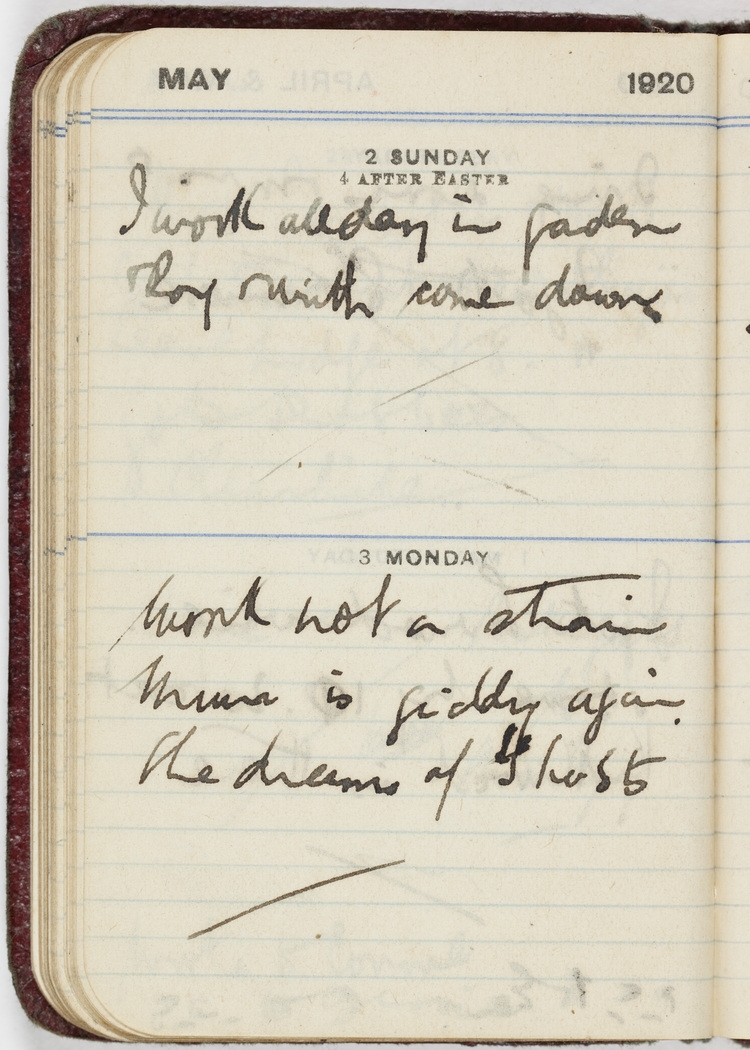 MAY 1920
2 SUNDAY
4 AFTER EASTER
I work all day in gaden
Roy & Ruth come down
3 MONDAY
Work not a strain
Mum is giddy again.
She dreams of Ghosts